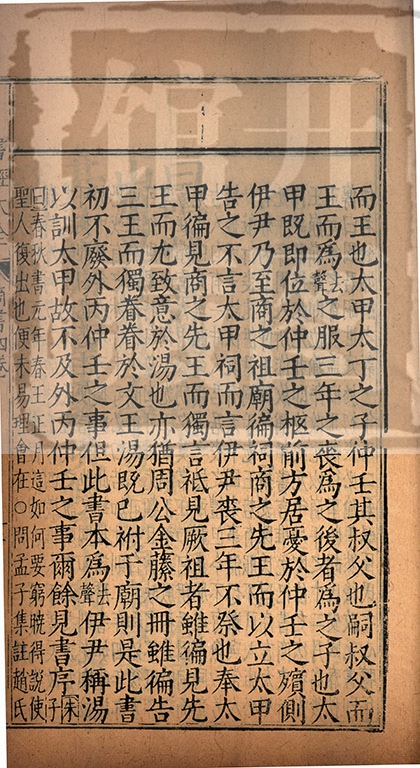 而王也太甲太丁之子仲壬其叔父也嗣叔父而
王而為去聲之服三年之喪為之後者為之子也太
甲既即位於仲壬之柩前方居憂於仲壬之殯側
伊尹乃至商之祖廟徧祠商之先王而以立太甲
告之不言太甲祠而言伊尹喪三年不祭也奉太
甲徧見商之先王而獨言祗見厥祖者雖徧見先
王而尤致意於湯也亦猶周公金縢之冊雖徧告
三王而獨眷眷於文王湯既已祔于廟則是此書
初不廢外丙仲壬之事但此書本為去聲伊尹稱湯
以訓太甲故不及外丙仲壬之事爾餘見書序朱子
曰春秋書元年春王正月這如何要窮曉得說使
聖人復出也便未易理會在○問孟子集註趙氏
書經大全
商書四卷